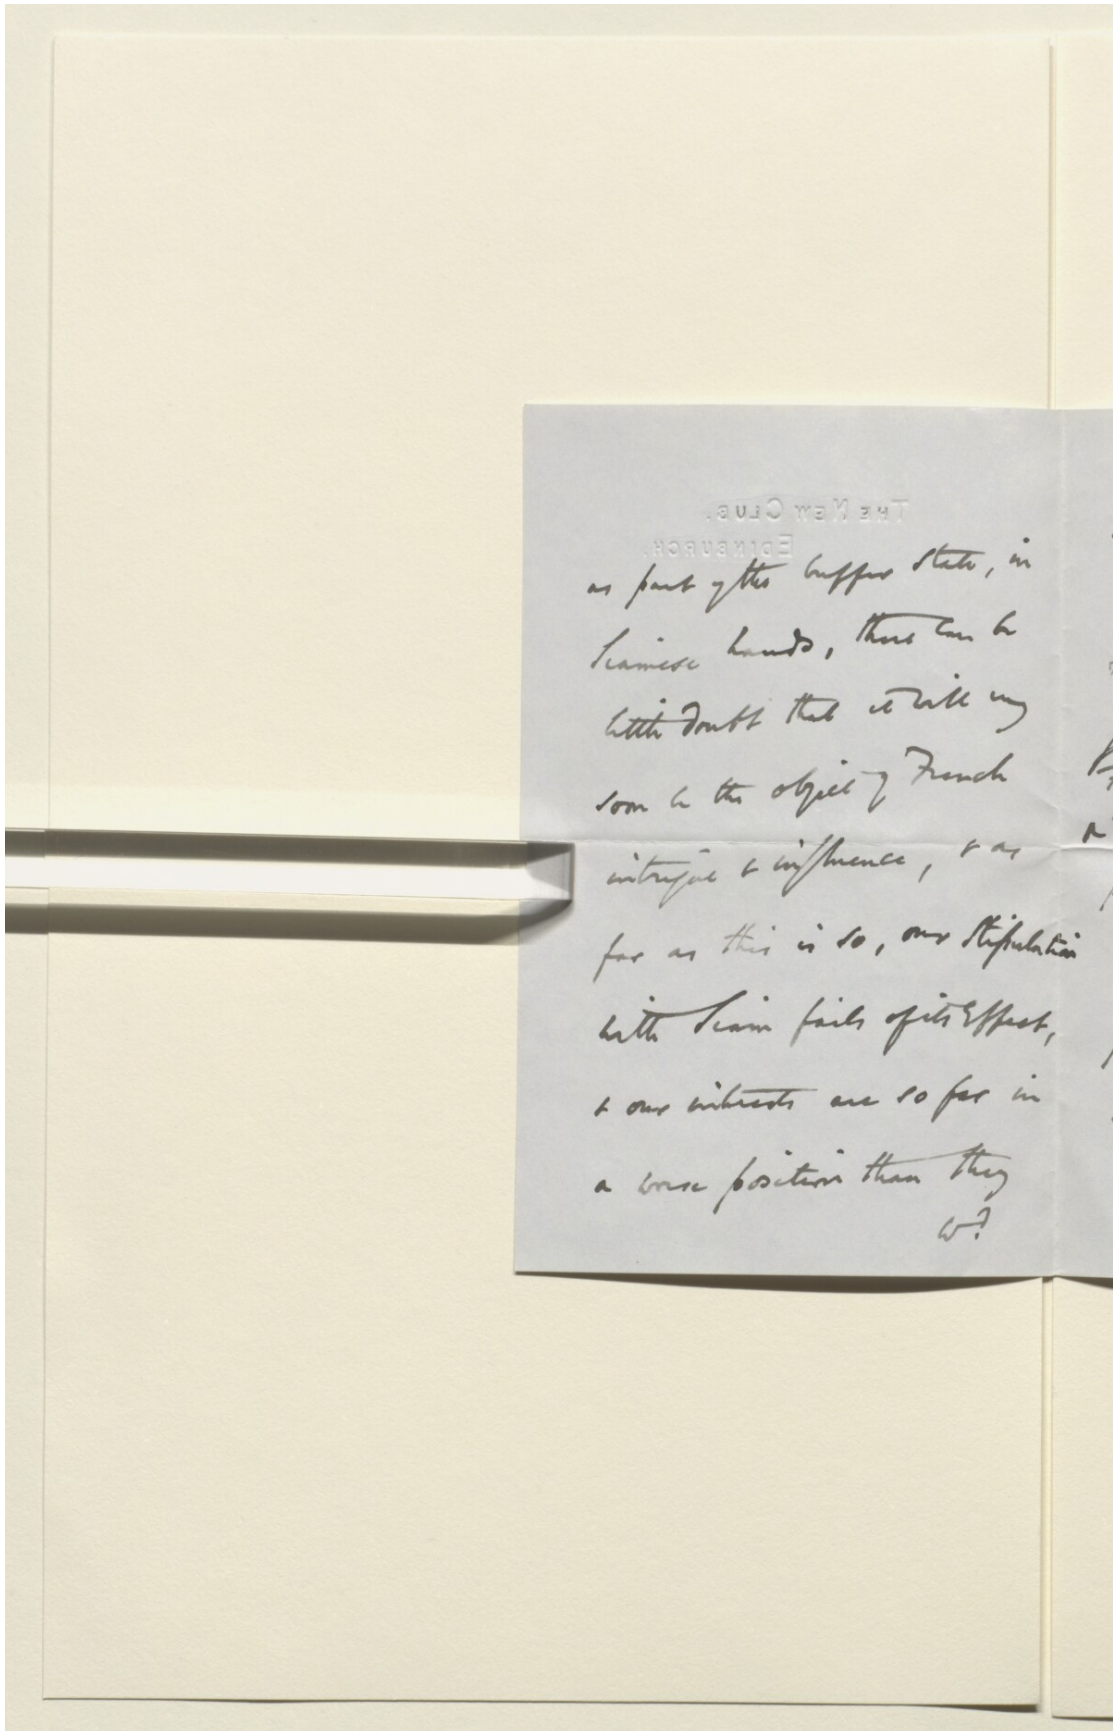 THE NEW CLUB.
EDINBURGH.
as part of the buffer state, in
Siamese hands, there can be
little doubt that it will very
soon be the object of French
intrigue & influence, & as
far as this is so, our stipulation
with Siam fails of its Effect,
& our interests are so far in
a worse position than they
wd